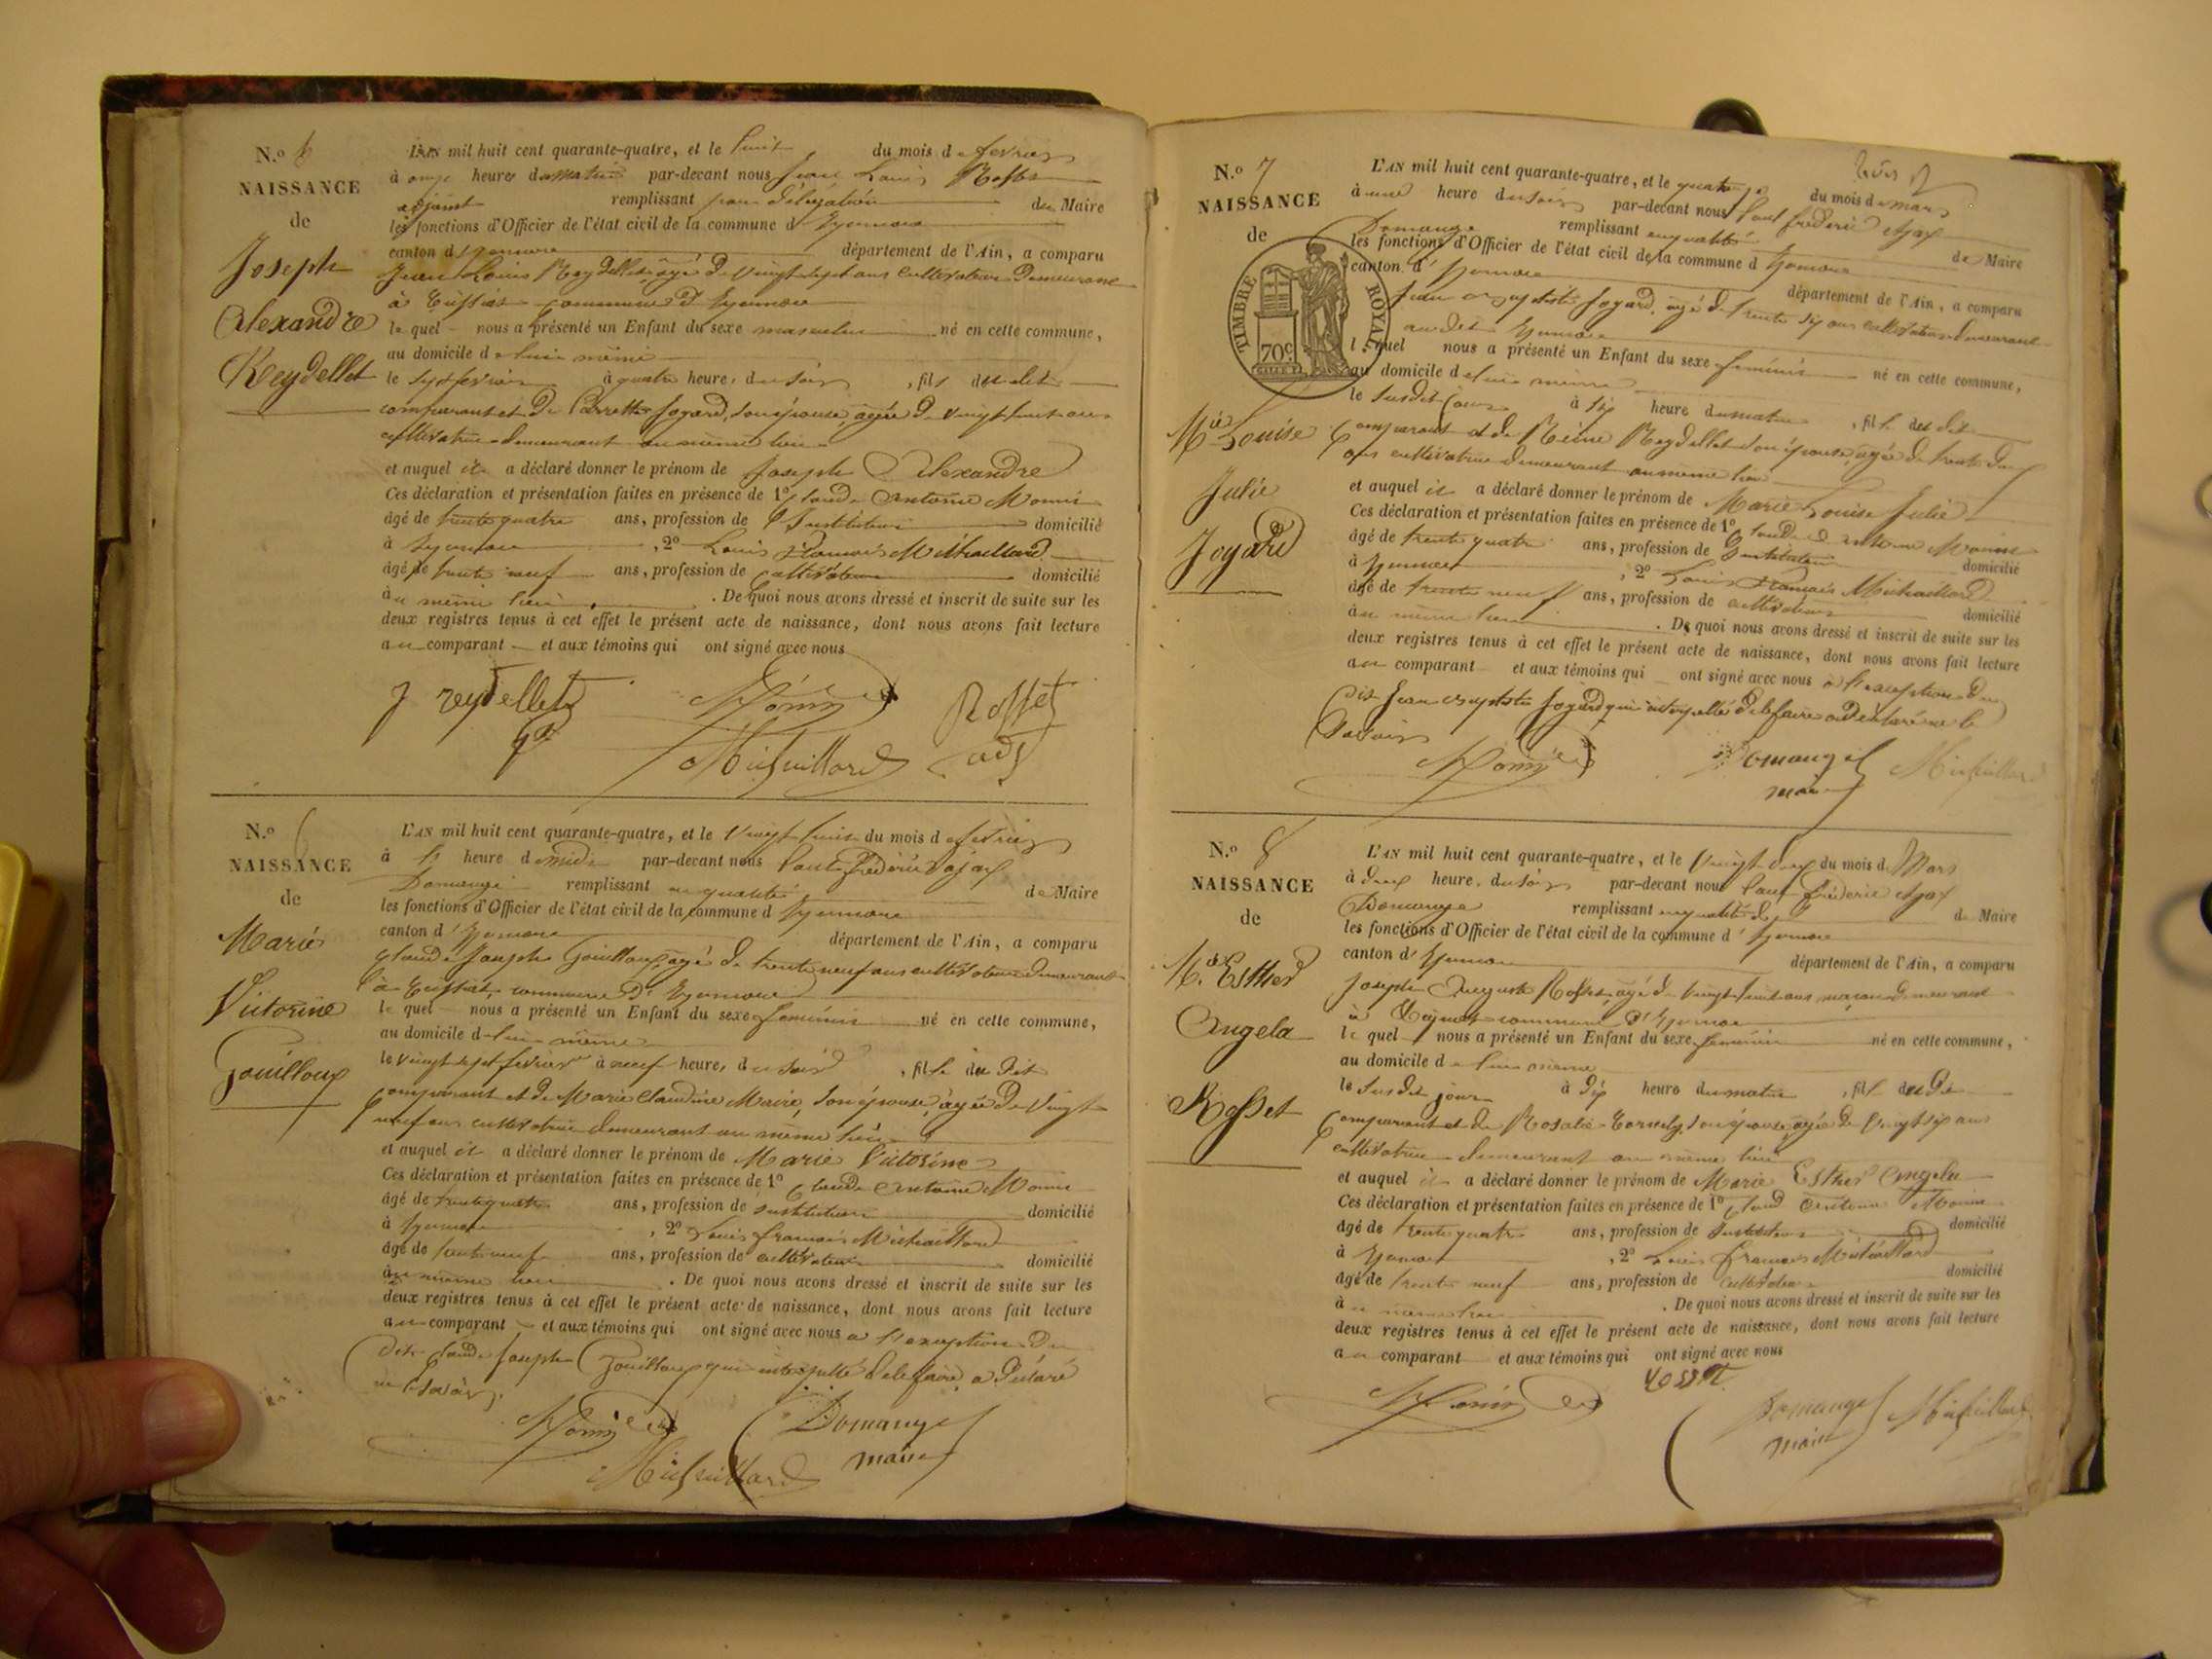 N.º 6
NAISSANCE
de
Joseph
Alexandre
Reydellet
L'AN mil huit cent quarante-quatre, et le huit du mois de fevrier
à onze heures du matin par-devant nous Jean Louis Rosset
adjoint remplissant par délégation du Maire
les fonctions d'Officier de l'état civil de la commune d'
canton d' département de l'Ain, a comparu
Jean Louis Reydellet, âgé de vingt sept ans cultivateur demeurant
à commune d'
lequel nous a présenté un Enfant du sexe masculin né en cette commune,
au domicile de lui même
le sept fevrier à quatre heures du soir, fils du dit
comparant et de Pierrette Joyard, son épouse, âgée de vingt huit ans
cultivatrice demeurant au même lieu
et auquel il a déclaré donner le prénom de Joseph Alexandre
Ces déclaration et présentation faites en présence de 1º Claude Antoine
âgé de trente quatre ans, profession de Instituteur domicilié
à , 2º Louis François Michaillard
âgé de trente neuf ans, profession de cultivateur domicilié
au même lieu . De quoi nous avons dressé et inscrit de suite sur les
deux registres tenus à cet effet le présent acte de naissance, dont nous avons fait lecture
au comparant et aux témoins qui ont signé avec nous
J reydellet
Rosset
Michaillard adj
N.º 6
NAISSANCE
de
Marie
Victorine
Gouilloux
L'AN mil huit cent quarante-quatre, et le vingt huit du mois de fevrier
à heure de midi par-devant nous Paul Frédéric Ajax
Domange remplissant en qualité de Maire
les fonctions d'Officier de l'état civil de la commune d'
canton d' département de l'Ain, a comparu
Claude Joseph Gouilloux, âgé de trente neuf ans cultivateur demeurant
à commune d'
lequel nous a présenté un Enfant du sexe feminin né en cette commune,
au domicile de lui même
le vingt sept fevrier à neuf heures du soir, fille du dit
comparant et de Marie Claudine son épouse, âgée de vingt
neuf ans cultivatrice demeurant au même lieu
et auquel il a déclaré donner le prénom de Marie Victorine
Ces déclaration et présentation faites en présence de 1º Claude Antoine
âgé de trente quatre ans, profession de instituteur domicilié
à , 2º Louis François Michaillard
âgé de trente neuf ans, profession de cultivateur domicilié
au même lieu . De quoi nous avons dressé et inscrit de suite sur les
deux registres tenus à cet effet le présent acte de naissance, dont nous avons fait lecture
au comparant et aux témoins qui ont signé avec nous à l'exception du
dit Claude Joseph Gouilloux qui interpellé de le faire a déclaré
ne savoir.
Domange
Michaillard maire
N.º 7
NAISSANCE
de
TIMBRE ROYAL
70c
Mie Louise
Julie
Joyard
L'AN mil huit cent quarante-quatre, et le quatorze du mois de mars
à une heure du soir par-devant nous Paul fréderic Ajax
Domange remplissant en qualité de Maire
les fonctions d'Officier de l'état civil de la commune d'
canton d' département de l'Ain, a comparu
Jean Baptiste Joyard, âgé de trente six ans cultivateur demeurant
au dit
lequel nous a présenté un Enfant du sexe feminin né en cette commune,
au domicile de lui même
le susdit jour à six heures du matin, fille du dit
comparant et de Reine Reydellet son épouse, âgée de trente deux
ans cultivatrice demeurant au même lieu
et auquel il a déclaré donner le prénom de Marie Louise Julie
Ces déclaration et présentation faites en présence de 1º Claude Antoine
âgé de trente quatre ans, profession de Instituteur domicilié
à , 2º Louis François Michaillard
âgé de trente neuf ans, profession de cultivateur domicilié
au même lieu . De quoi nous avons dressé et inscrit de suite sur les
deux registres tenus à cet effet le présent acte de naissance, dont nous avons fait lecture
au comparant et aux témoins qui ont signé avec nous à l'exception du
dit Jean Baptiste Joyard qui interpellé de le faire a declaré ne le
savoir
Domange Michaillard
maire
N.º 8
NAISSANCE
de
Mie Esther
Angela
Rosset
L'AN mil huit cent quarante-quatre, et le vingt deux du mois de Mars
à deux heures du soir par-devant nous Paul fréderic Ajax
Domange remplissant en qualité de Maire
les fonctions d'Officier de l'état civil de la commune d'
canton d' département de l'Ain, a comparu
Joseph Auguste Rosset, âgé de vingt huit ans maçon demeurant
à commune d'
lequel nous a présenté un Enfant du sexe feminin né en cette commune,
au domicile de lui même
le susdit jour à dix heures du matin, fille du dit
comparant et de Rosalie son épouse, âgée de vingt six ans
cultivatrice demeurant au même lieu
et auquel il a déclaré donner le prénom de Marie Esther Angela
Ces déclaration et présentation faites en présence de 1º Claude Antoine
âgé de trente quatre ans, profession de Instituteur domicilié
à , 2º Louis François Michaillard
âgé de trente neuf ans, profession de cultivateur domicilié
au même lieu . De quoi nous avons dressé et inscrit de suite sur les
deux registres tenus à cet effet le présent acte de naissance, dont nous avons fait lecture
au comparant et aux témoins qui ont signé avec nous
rosset
Domange Michaillard
maire